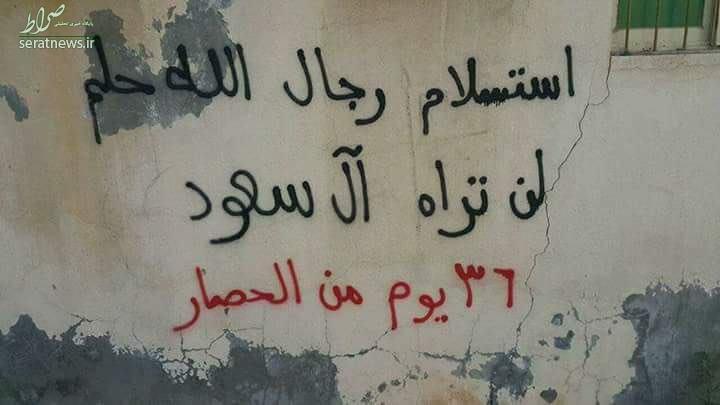 صراط
پایگاه خبری تحلیلی
seratnews.ir
استسلام رجال الله حلم
لن تراه آل سعود
٣٦ يوم من الحصار